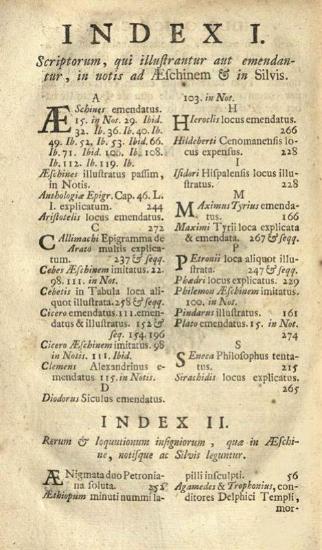 INDEX I.
Scriptorum, qui illustrantur aut emendan-
tur, in notis ad Æschinem & in Silvis.
A
ÆSchines emendatus.
15. in Not. 29. Ibid.
32. Ib. 36. Ib. 40. Ib.
49. Ib. 52, Ib. 53. Ibid. 66.
Ib. 71. Ibid. 100. Ib. 108.
Ib. 112. Ib. 119. Ib.
Æschines illustratus passim,
in Notis.
Anthologiæ Epigr. Cap. 46. L.
I. explicatum. 244
Aristotelis locus emendatus.
C 272
CAllimachi Epigramma de
Arato multis explica-
tum. 237 & seqq.
Cebes Æschinem imitatus. 22.
98. 111. in Not.
Cebetis in Tabula loca ali-
quot illustrata. 258 & seqq.
Cicero emendatus. 111. emen-
datus & illustratus. 152 &
seq. 154. 196
Cicero Æschinem imitatus. 98
in Notis. 111. Ibid.
Clemens Alexandrinus e-
mendatus 115. in Notis.
D
Diodorus Siculus emendatus.
103. in Not.
H
HIeroclis locus emendatus.
266
Hildeberti Cenomanensis lo-
cus expensus. 228
I
Isidori Hispalensis locus illu-
stratus. 228
M
MAximus Tyrius emenda-
tus. 166
Maximi Tyrii loca explicata
& emendata. 267 & seqq.
P
PEtronii loca aliquot illu-
strata. 247 & seqq.
Phædri locus explicatus. 229
Philemon Æschinem imitatus.
100. in Not.
Pindarus illustratus. 161
Plato emendatus. 15. in Not.
274
S
SEneca Philosophus tenta-
tus. 215
Sirachidis locus explicatus.
265
INDEX II.
Rerum & loquutionum insigniorum, quæ in Æschi-
ne, notisque ac Silvis leguntur.
ÆNigmata duo Petronia-
na soluta. 251
Æthiopum minuti nummi la-
pilli insculpti. 56
Agamedes & Trophonius, con-
ditores Delphici Templi,
mor-